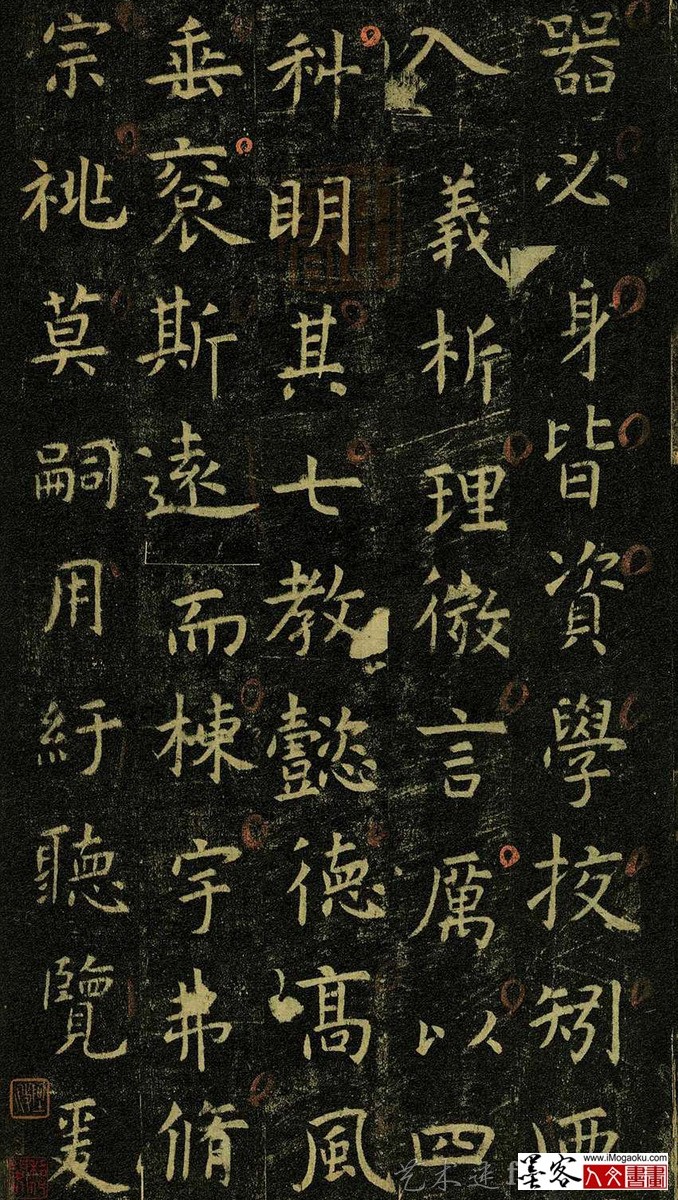 器必身皆資學挍矧迺
入義析理微言厲以四
科明其七教懿德高風
垂裕斯遠而棟宇弗脩
宗祧莫嗣用紆聽覽爰
www.iMogaoku.com
墨客 人文書畫
艺术迷